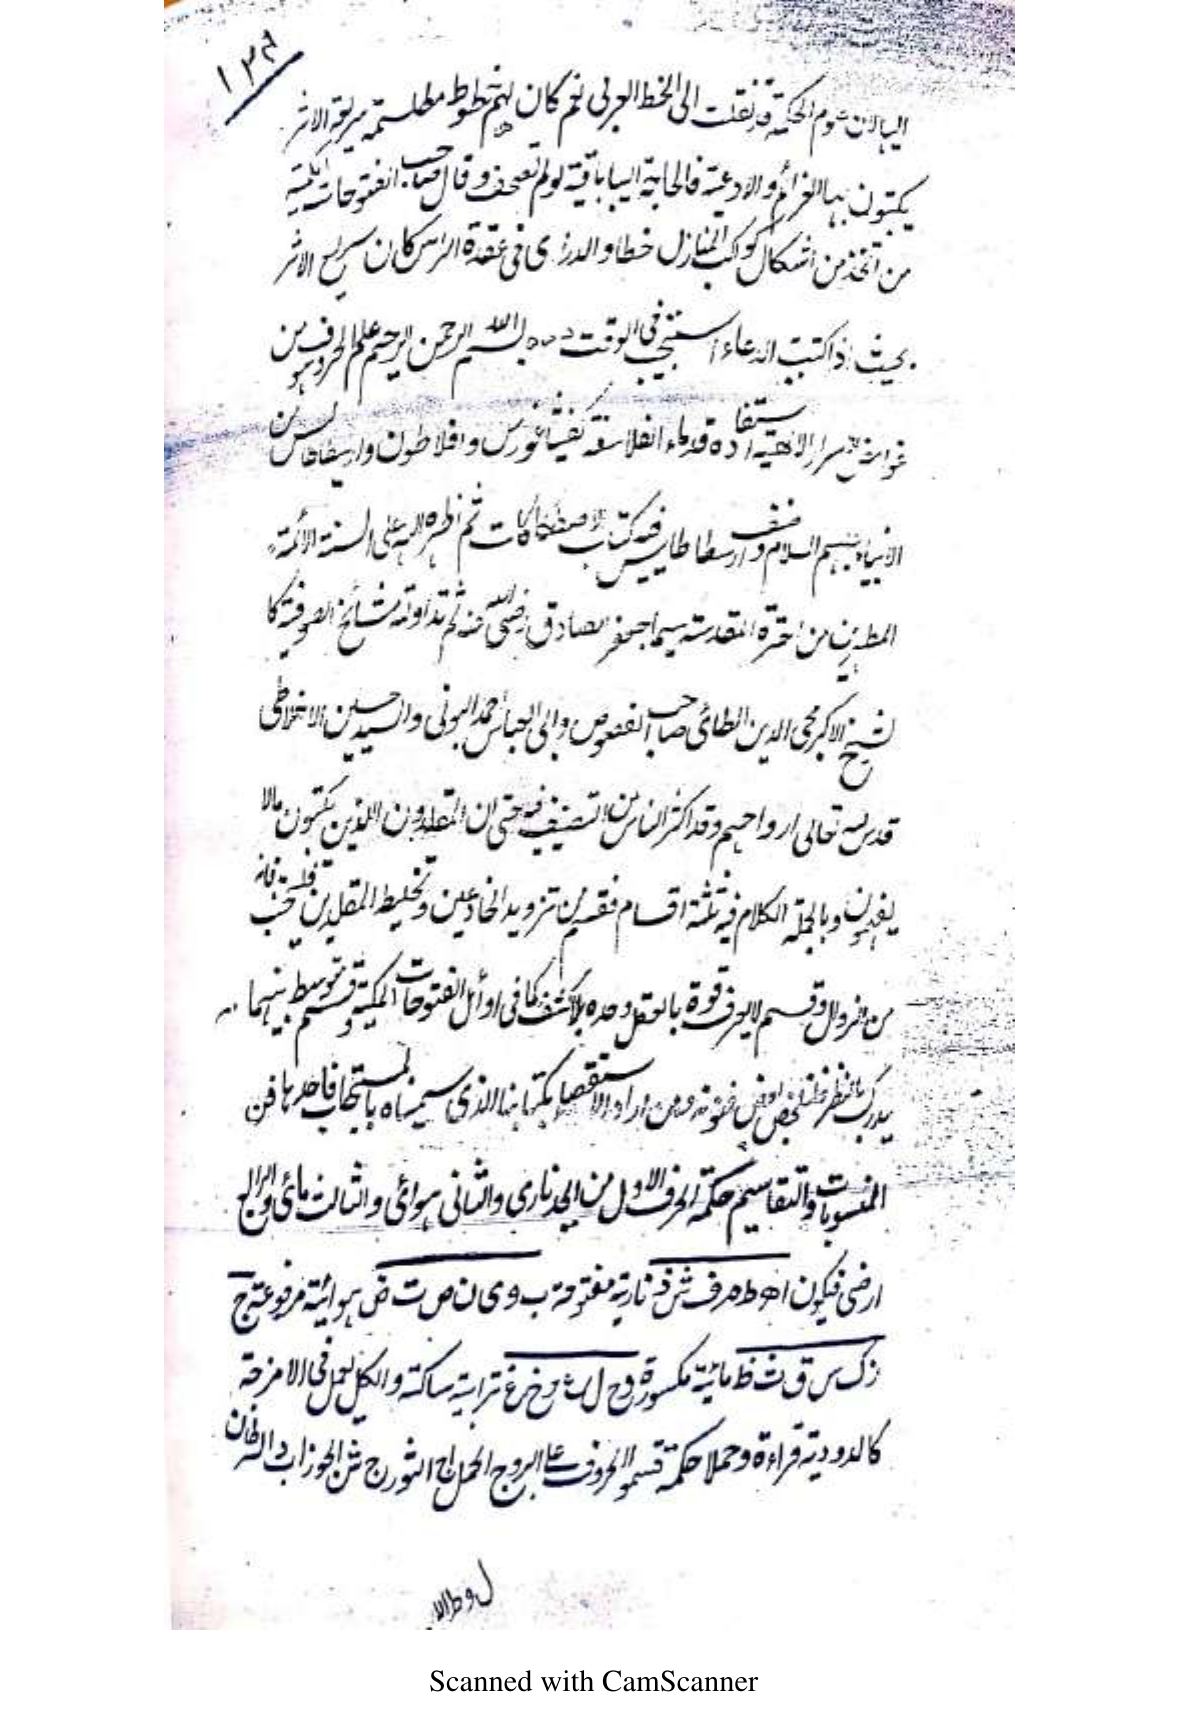 ١٣٩
اليها لان علوم الحكمة قد نقلت الى الخط العربى نعم كان لهم خطوط مطلسمة سريعة الاثر
يكتبون بها العزائم والادعية فالحاجة اليها باقية لو لم تصحف وقال صاحب الفتوحات المكية
من اتخذ من اشكال كواكب المنازل خطا والدرارى فى عقدة الراس كان سريع الاثر
بحيث اذا كتب الدعاء استجيب فى الوقت بسم الله الرحمن الرحيم علم الحروف هو من
غوامض الاسرار الالهية استفاده قدماء الفلاسفة كفيثاغورس وافلاطون وارسطاطاليس من
الانبياء عليهم السلام وصنف ارسطاطاليس فيه كتاب ثم اظهره الله على السنة الأئمة
المطهرين من العترة المقدسة سيما جعفر الصادق رضى الله عنه ثم تداولته مشائخ الصوفية كا
لشيخ الاكبر محى الدين الطائى صاحب الفصوص وابى العباس احمد البونى والسيد حسين الاخلاطى
قدس الله تعالى ارواحهم وقد اكثر الناس من التصنيف فيه حتى ان المقلدون اللذين يكتبون مالا
يفهمون وبالجملة الكلام فيه ثلثة اقسام فقسم من تزويد الخادعين وتخليط المقلدين فانه
من وقسم لا يعرف قوة بالعقل وحده بلا كشف كما فى اوائل الفتوحات المكية وقسم متوسط بينهما
يدرك بالنظر فلنلخص ومن اراد الاستقصا بكتابنا الذى سميناه بالمستجاب فن
المنسوبات والتقاسيم حكمة الحرف الاول من ابجد نارى والثانى هوائى والثالث مائى والرابع
ارضى فيكون ا ه ط م ف ش ذ نارية مفتوحة ب و ى ن ص ت ض هوائية مرفوعة ج
ز ك س ق ث ظ مائية مكسورة د ح ل ع ر خ غ ترابية ساكنة والكل يعمل فى الامزجة
كالدودية قراءة وحملا حكمة قسموا الحروف على البروج الحمل الثور الجوزا السرطان